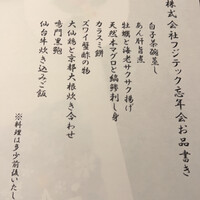 株式会社フジテック忘年会お品書き
白子茶碗蒸し
あん肝旨煮
牡蠣と海老サクサク揚げ
天然本マグロと縞鯵刺し身
カラスミ餅
ズワイ蟹酢の物
大仙鶏と京都大根炊き合わせ
鳴門黒鮑
仙台牛炊き込みご飯
※料理は多少前後いたし